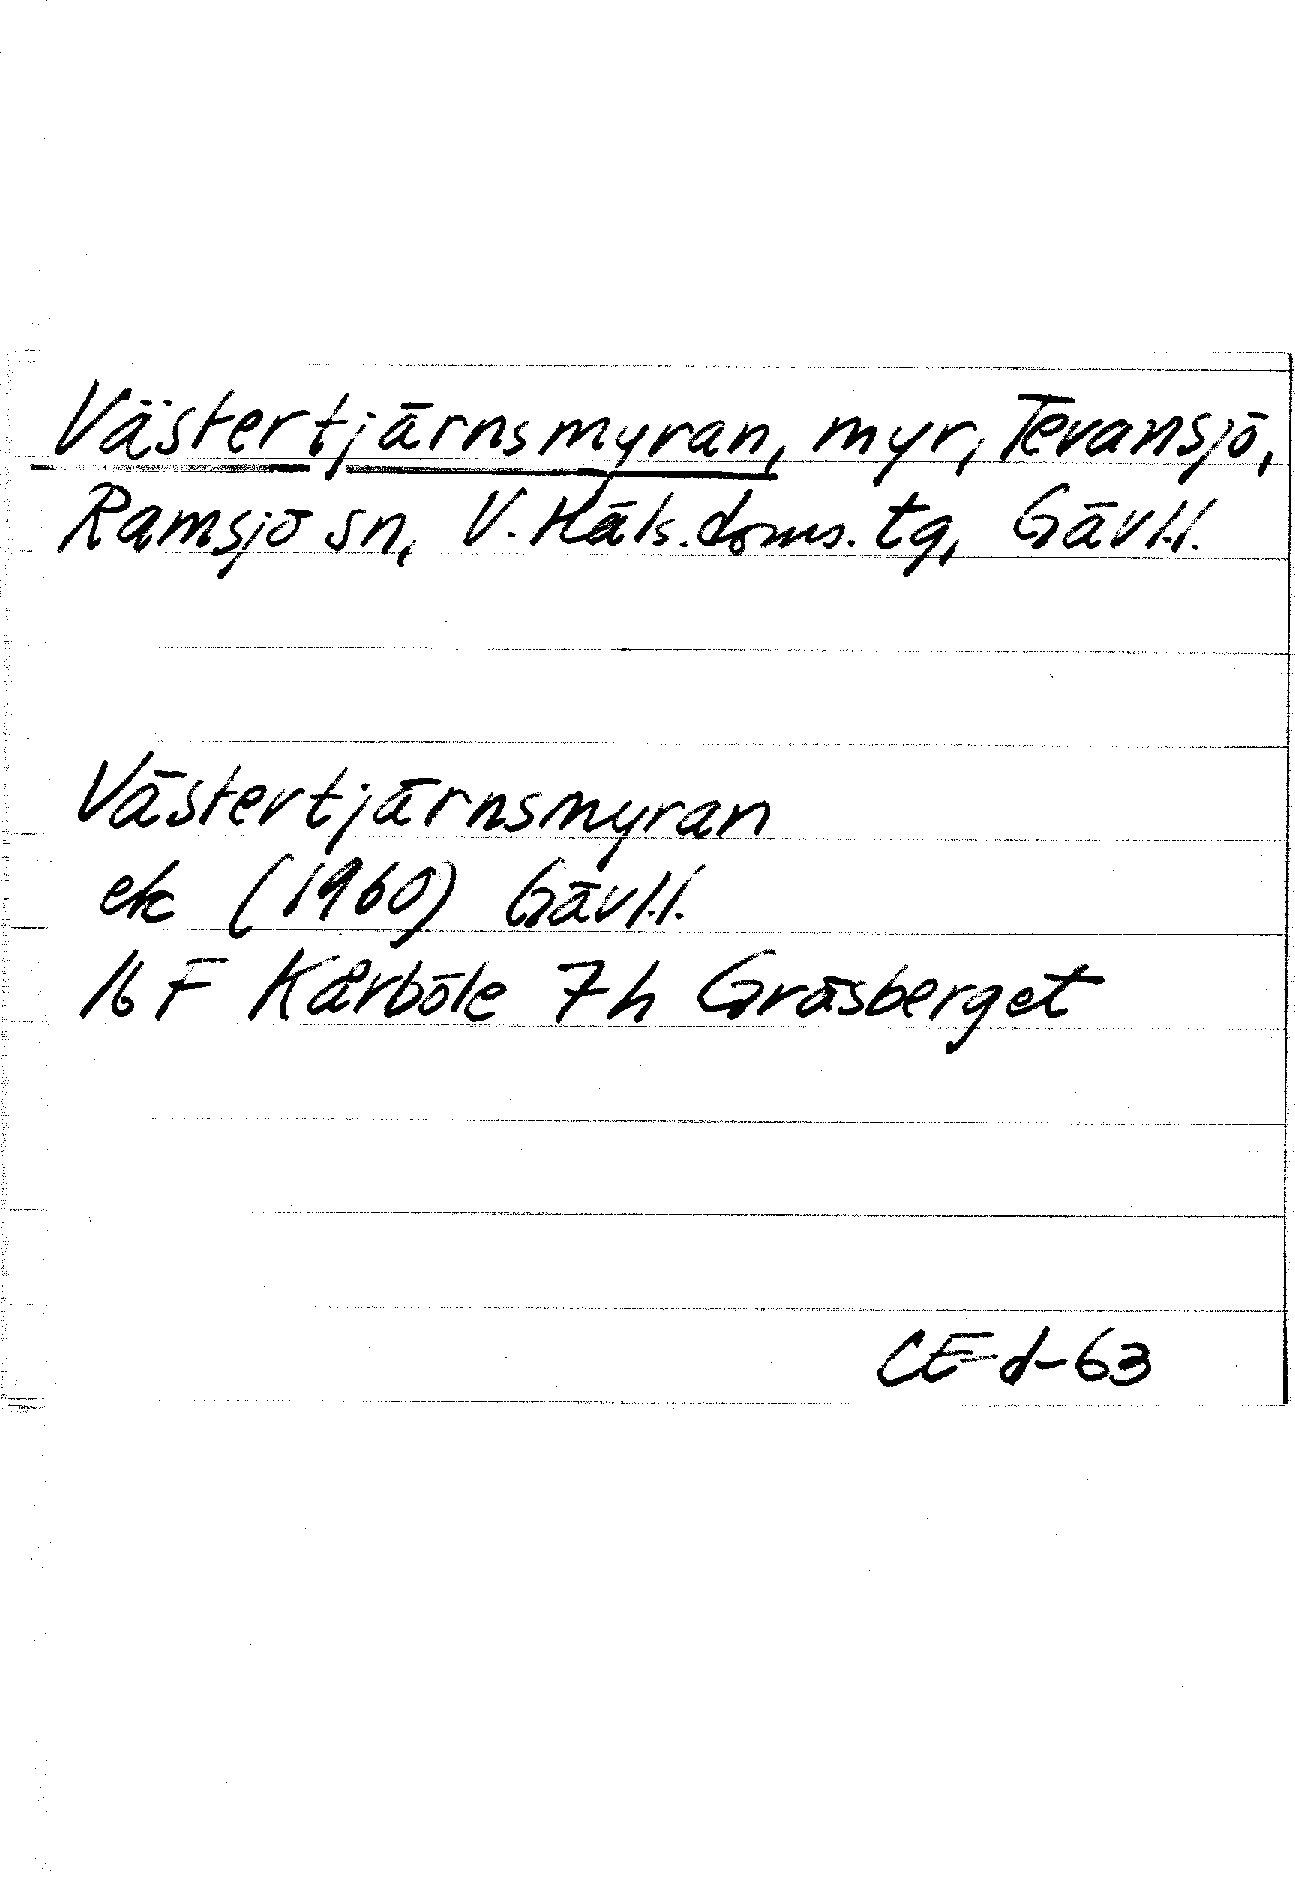 Västertjärnsmyran, myr, Tevansjö,
Ramsjö sn, V. Häls. doms. tg, Gävl.l.
Västertjärnsmyran
ek (1960) Gävl.l.
16 F Kårböle 7h Gräsberget
CE d-63